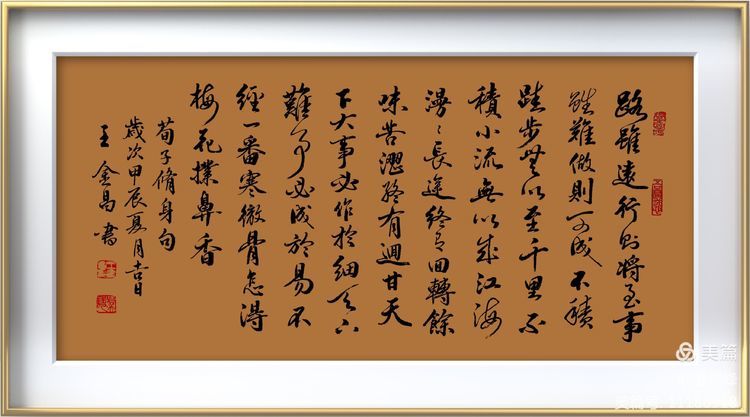 路雖遠行則將至事
雖難做則可成不積
跬步無以至千里不
積小流無以成江海
漫〻長途終有回轉餘
味苦澀終有迴甘天
下大事必作於細天下
難事必成於易不
經一番寒徹骨怎得
梅花撲鼻香
荀子脩身句
歲次甲辰夏月吉日
王金昌書
美篇